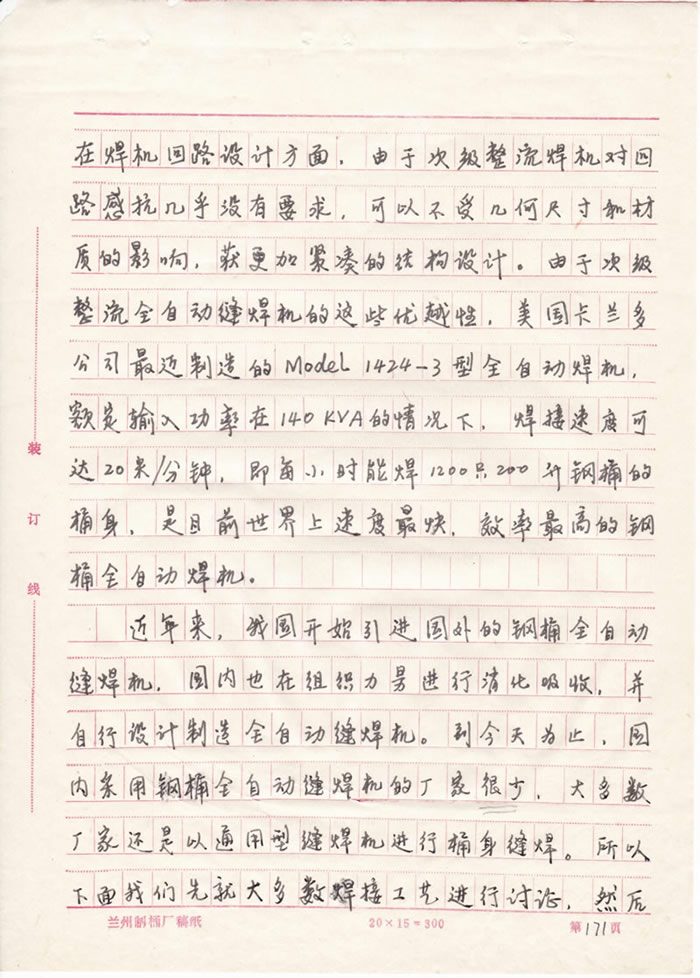 在焊机回路设计方面，由于次级整流焊机对回
路感抗几乎没有要求，可以不受几何尺寸和材
质的影响，获更加紧凑的结构设计。由于次级
整流全自动缝焊机的这些优越性，美国卡兰多
公司最近制造的Model 1424-3型全自动焊机，
额定输入功率在140KVA的情况下，焊接速度可
达20米/分钟，即每小时能焊1200只200升钢桶的
桶身，是目前世界上速度最快，效率最高的钢
桶全自动焊机。
近年来，我国开始引进国外的钢桶全自动
缝焊机，国内也在组织力量进行消化吸收，并
自行设计制造全自动缝焊机。到今天为止，国
内采用钢桶全自动缝焊机的厂家很少，大多数
厂家还是以通用型缝焊机进行桶身缝焊。所以
下面我们先就大多数焊接工艺进行讨论，然后
装
订
线
兰州制桶厂稿纸 20×15=300 第171页